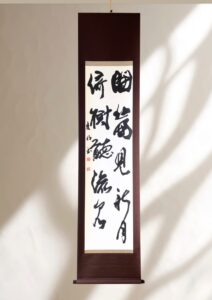 開窗見新月
倚樹聽流泉